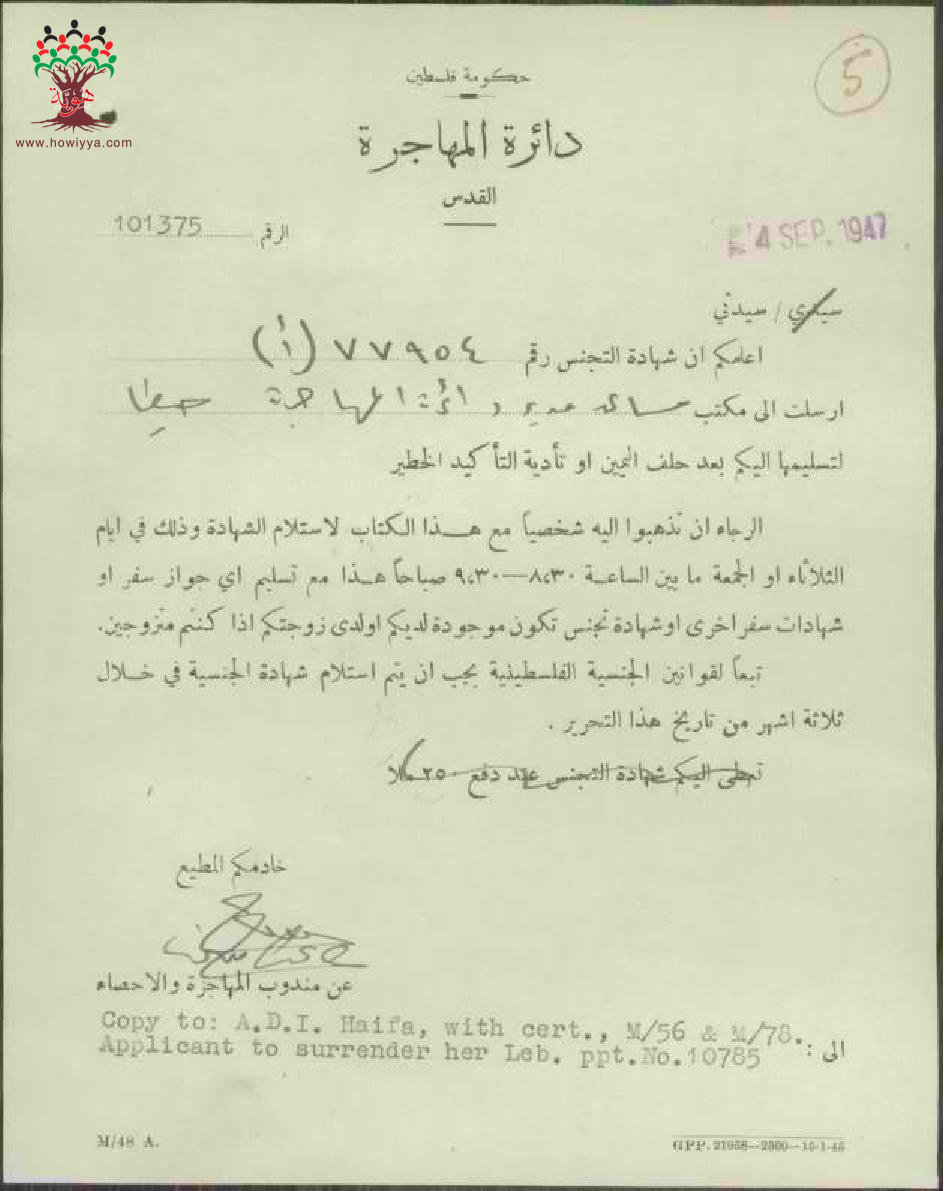 هوية
www.howiyya.com
5
حكومة فلسطين
دائرة المهاجرة
القدس
الرقم 101375
4 SEP. 1947
سيدي / سيدتي
اعلمكم ان شهادة التجنس رقم ٧٧٩٥٤ (أ)
ارسلت الى مكتب مساعد مدير دائرة المهاجرة حيفا
لتسليمها اليكم بعد حلف اليمين او تأدية التأكيد الخطير
الرجاء ان تذهبوا اليه شخصياً مع هذا الكتاب لاستلام الشهادة وذلك في ايام
الثلاثاء او الجمعة ما بين الساعة ٨،٣٠—٩،٣٠ صباحاً هذا مع تسليم اي جواز سفر او
شهادات سفر اخرى او شهادة تجنس تكون موجودة لديكم او لدى زوجتكم اذا كنتم متزوجين.
تبعاً لقوانين الجنسية الفلسطينية يجب ان يتم استلام شهادة الجنسية في خلال
ثلاثة اشهر من تاريخ هذا التحرير .
تعطى اليكم شهادة التجنس عند دفع ٢٥٠ ملا
خادمكم المطيع
عن مندوب المهاجرة والاحصاء
Copy to: A.D.I. Haifa, with cert., M/56 & M/78.
Applicant to surrender her Leb. ppt.No.10785
الى :
M/48 A.
GPP. 21958—2500—15-1-45